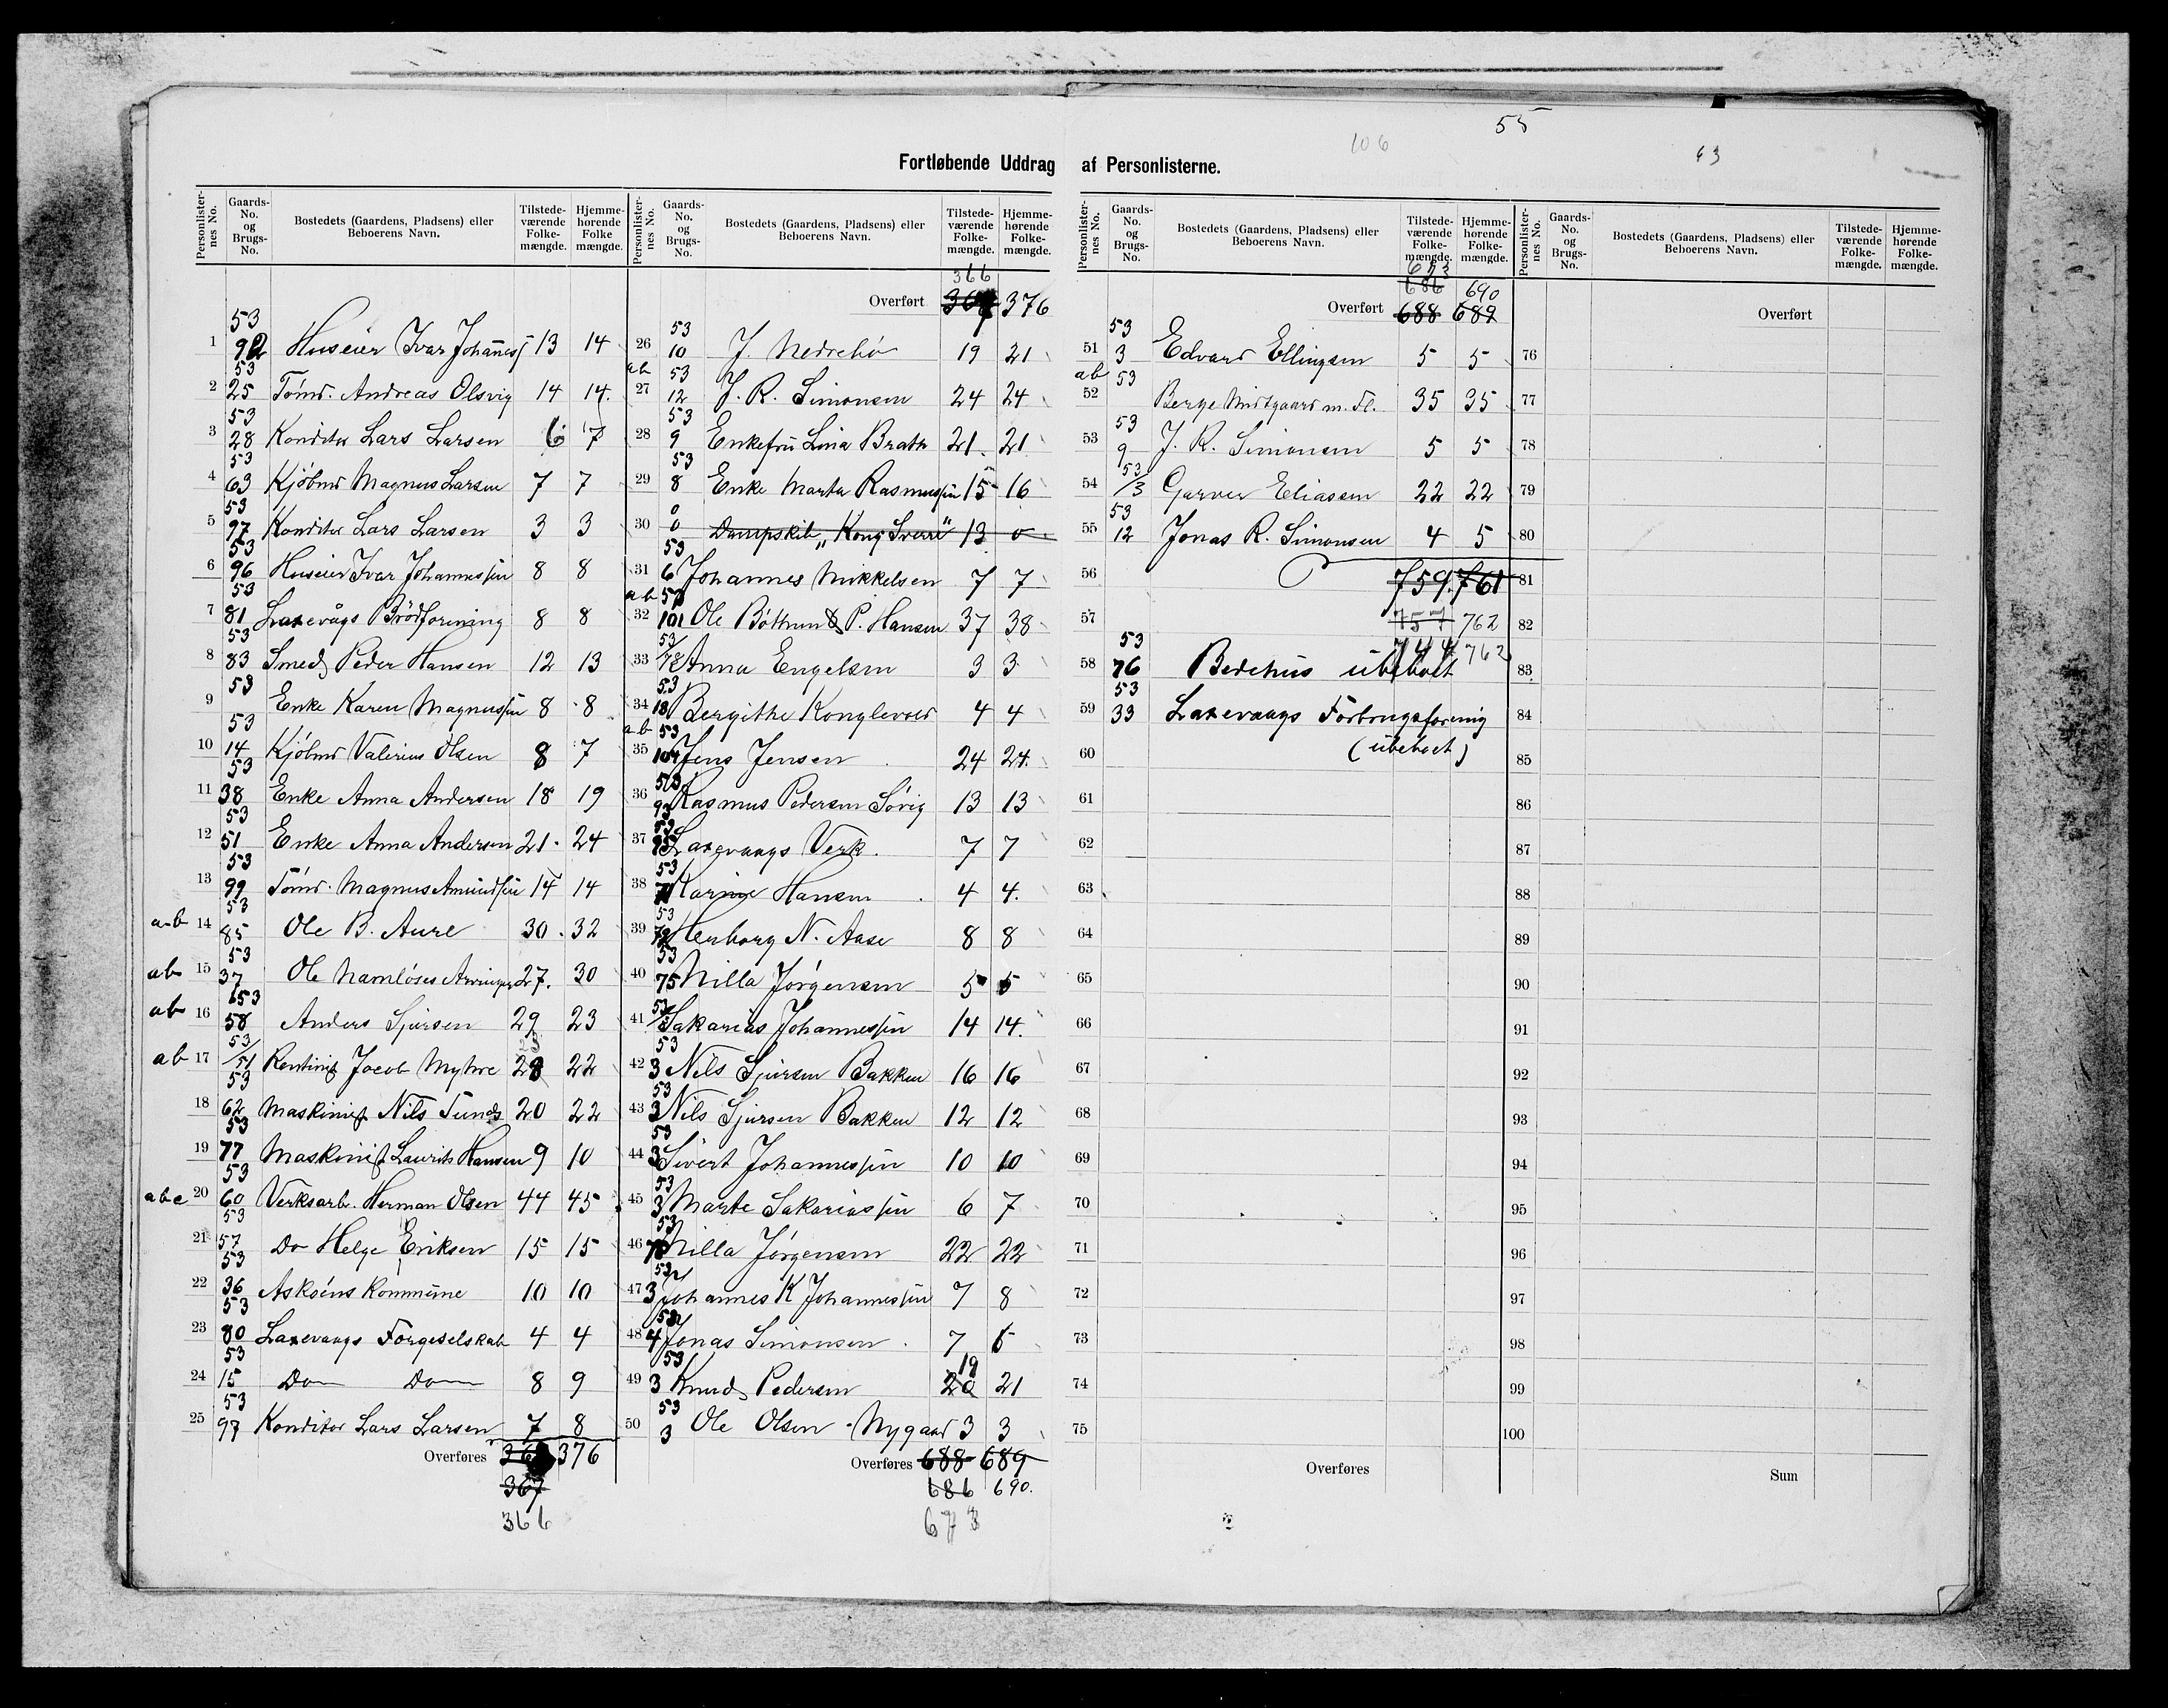 55
106
63
Fortløbende Uddrag af Personlisterne.
Personlister-nes No. Gaards-No. og Brugs-No. Bostedets (Gaardens, Pladsens) eller Beboerens Navn. Tilstede-værende Folke-mængde. Hjemme-hørende Folke mængde.
1 53 92 Huseier Ivar Johannes 13 14
2 53 25 Tømd. Andreas Olsvig 14 14.
3 53 28 Konditor Lars Larsen 6 7
4 53 63 Kjøbmd Magnus Larsen 7 7
5 53 97 Konditor Lars Larsen 3 3
6 53 96 Huseier Ivar Johannessen 8 8
7 53 81 Laxevågs Brödforening 8 8
8 53 83 Smed Peder Hansen 12 13
9 53 Enke Karen Magnussen 8 8
10 53 14 Kjöbmd Valerius Olsen 8 7
11 53 38 Enke Anna Andersen 18 19
12 53 51 Enke Anna Andersen 21 24
13 53 99 Tömd. Magnus Amundsen 14 14
ab 14 53 85 Ole B. Aure 30 32
ab 15 53 37 Ole Namløses 27. 30
ab 16 53 58 Anders Sjursen 29 23
ab 17 53 51 Jacob Myhre 28 22
18 53 62 Maskinist Nils Tunds 20 22
19 53 77 Maskinist Laurits Hansen 9 10
abc 20 53 60 Verksarb. Herman Olsen 44 45
21 53 57 Do Helge Eriksen 15 15
22 53 36 Askøens Kommune 10 10
23 53 80 Laxevaags Forgeselskab 4 4
24 53 15 Do Do 8 9
25 53 97 Konditor Lars Larsen 7 8
Overføres 376
367
366
Personlister-nes No. Gaards-No. og Brugs-No. Bostedets (Gaardens, Pladsens) eller Beboerens Navn. Tilstede-værende Folke-mængde. Hjemme-hørende Folke-mængde.
366
Overført 367 376
26 53 10 J. Nedrebø 19 21
ab 27 53 12 J. R. Simonsen 24 24
28 53 9 Enkefru Lina Brath 21. 21
29 53 8 Enke Marta Rasmussen 15 16
30 0 0 Dampskib „Kong Sverre" 13 0
31 53 6 Johannes Mikkelsen 7 7
ab 32 53 101 Ole Bøthun & P. Hansen 37 38
33 53 Anna Engelsen 3 3
34 53 18 Bergithe Konglevold 4 4
ab 35 53 104 Jens Jensen 24 24.
36 53 93 Rasmus Pedersen Søvig 13 13
37 53 Laxevaags Verk. 7 7
38 53 Karine Hansen 4 4.
39 53 Herborg N. Aase 8 8
40 53 75 Nilla Jørgensen 5 5
41 53 Sakarias Johannessen 14 14.
42 53 3 Nils Sjursen Bakken 16 16
43 53 3 Nils Sjursen Bakken 12 12
44 53 3 Sivert Johannessen 10 10
45 53 3 Marte Sakariassen 6 7
46 53 Nilla Jørgensen 22 22
47 53 3 Johannes K Johannessen 7 8
48 53 4 Jonas Simonsen 7 6
49 53 3 Knud Pedersen 20 19 21
50 53 3 Ole Olsen Nygaard 3 3
Overføres 688 689
686 690.
673
Personlister-nes No. Gaards-No. og Brugs-No. Bostedets (Gaardens, Pladsens) eller Beboerens Navn. Tilstede-værende Folke-mængde. Hjemme-hørende Folke-mængde.
673
686 690
Overført 688 689
51 53 3 Edvard Ellingsen 5 5
ab 52 53 Berge Midtgaard m. fl. 35 35
53 53 9 J. R. Simonsen 5 5
54 53 /3 Garver Eliassen 22 22
55 53 12 Jonas R. Simonsen 4 5
56 759. 761
57 757 762
744 762
58 53 76 Bedehus ubeboet
59 53 33 Laxevaags Forbrugsforenig
60 (ubeboet)
61
62
63
64
65
66
67
68
69
70
71
72
73
74
75
Overføres
Personlister-nes No. Gaards-No. og Brugs-No. Bostedets (Gaardens, Pladsens) eller Beboerens Navn. Tilstede-værende Folke-mængde. Hjemme-hørende Folke-mængde.
Overført
76
77
78
79
80
81
82
83
84
85
86
87
88
89
90
91
92
93
94
95
96
97
98
99
100
Sum